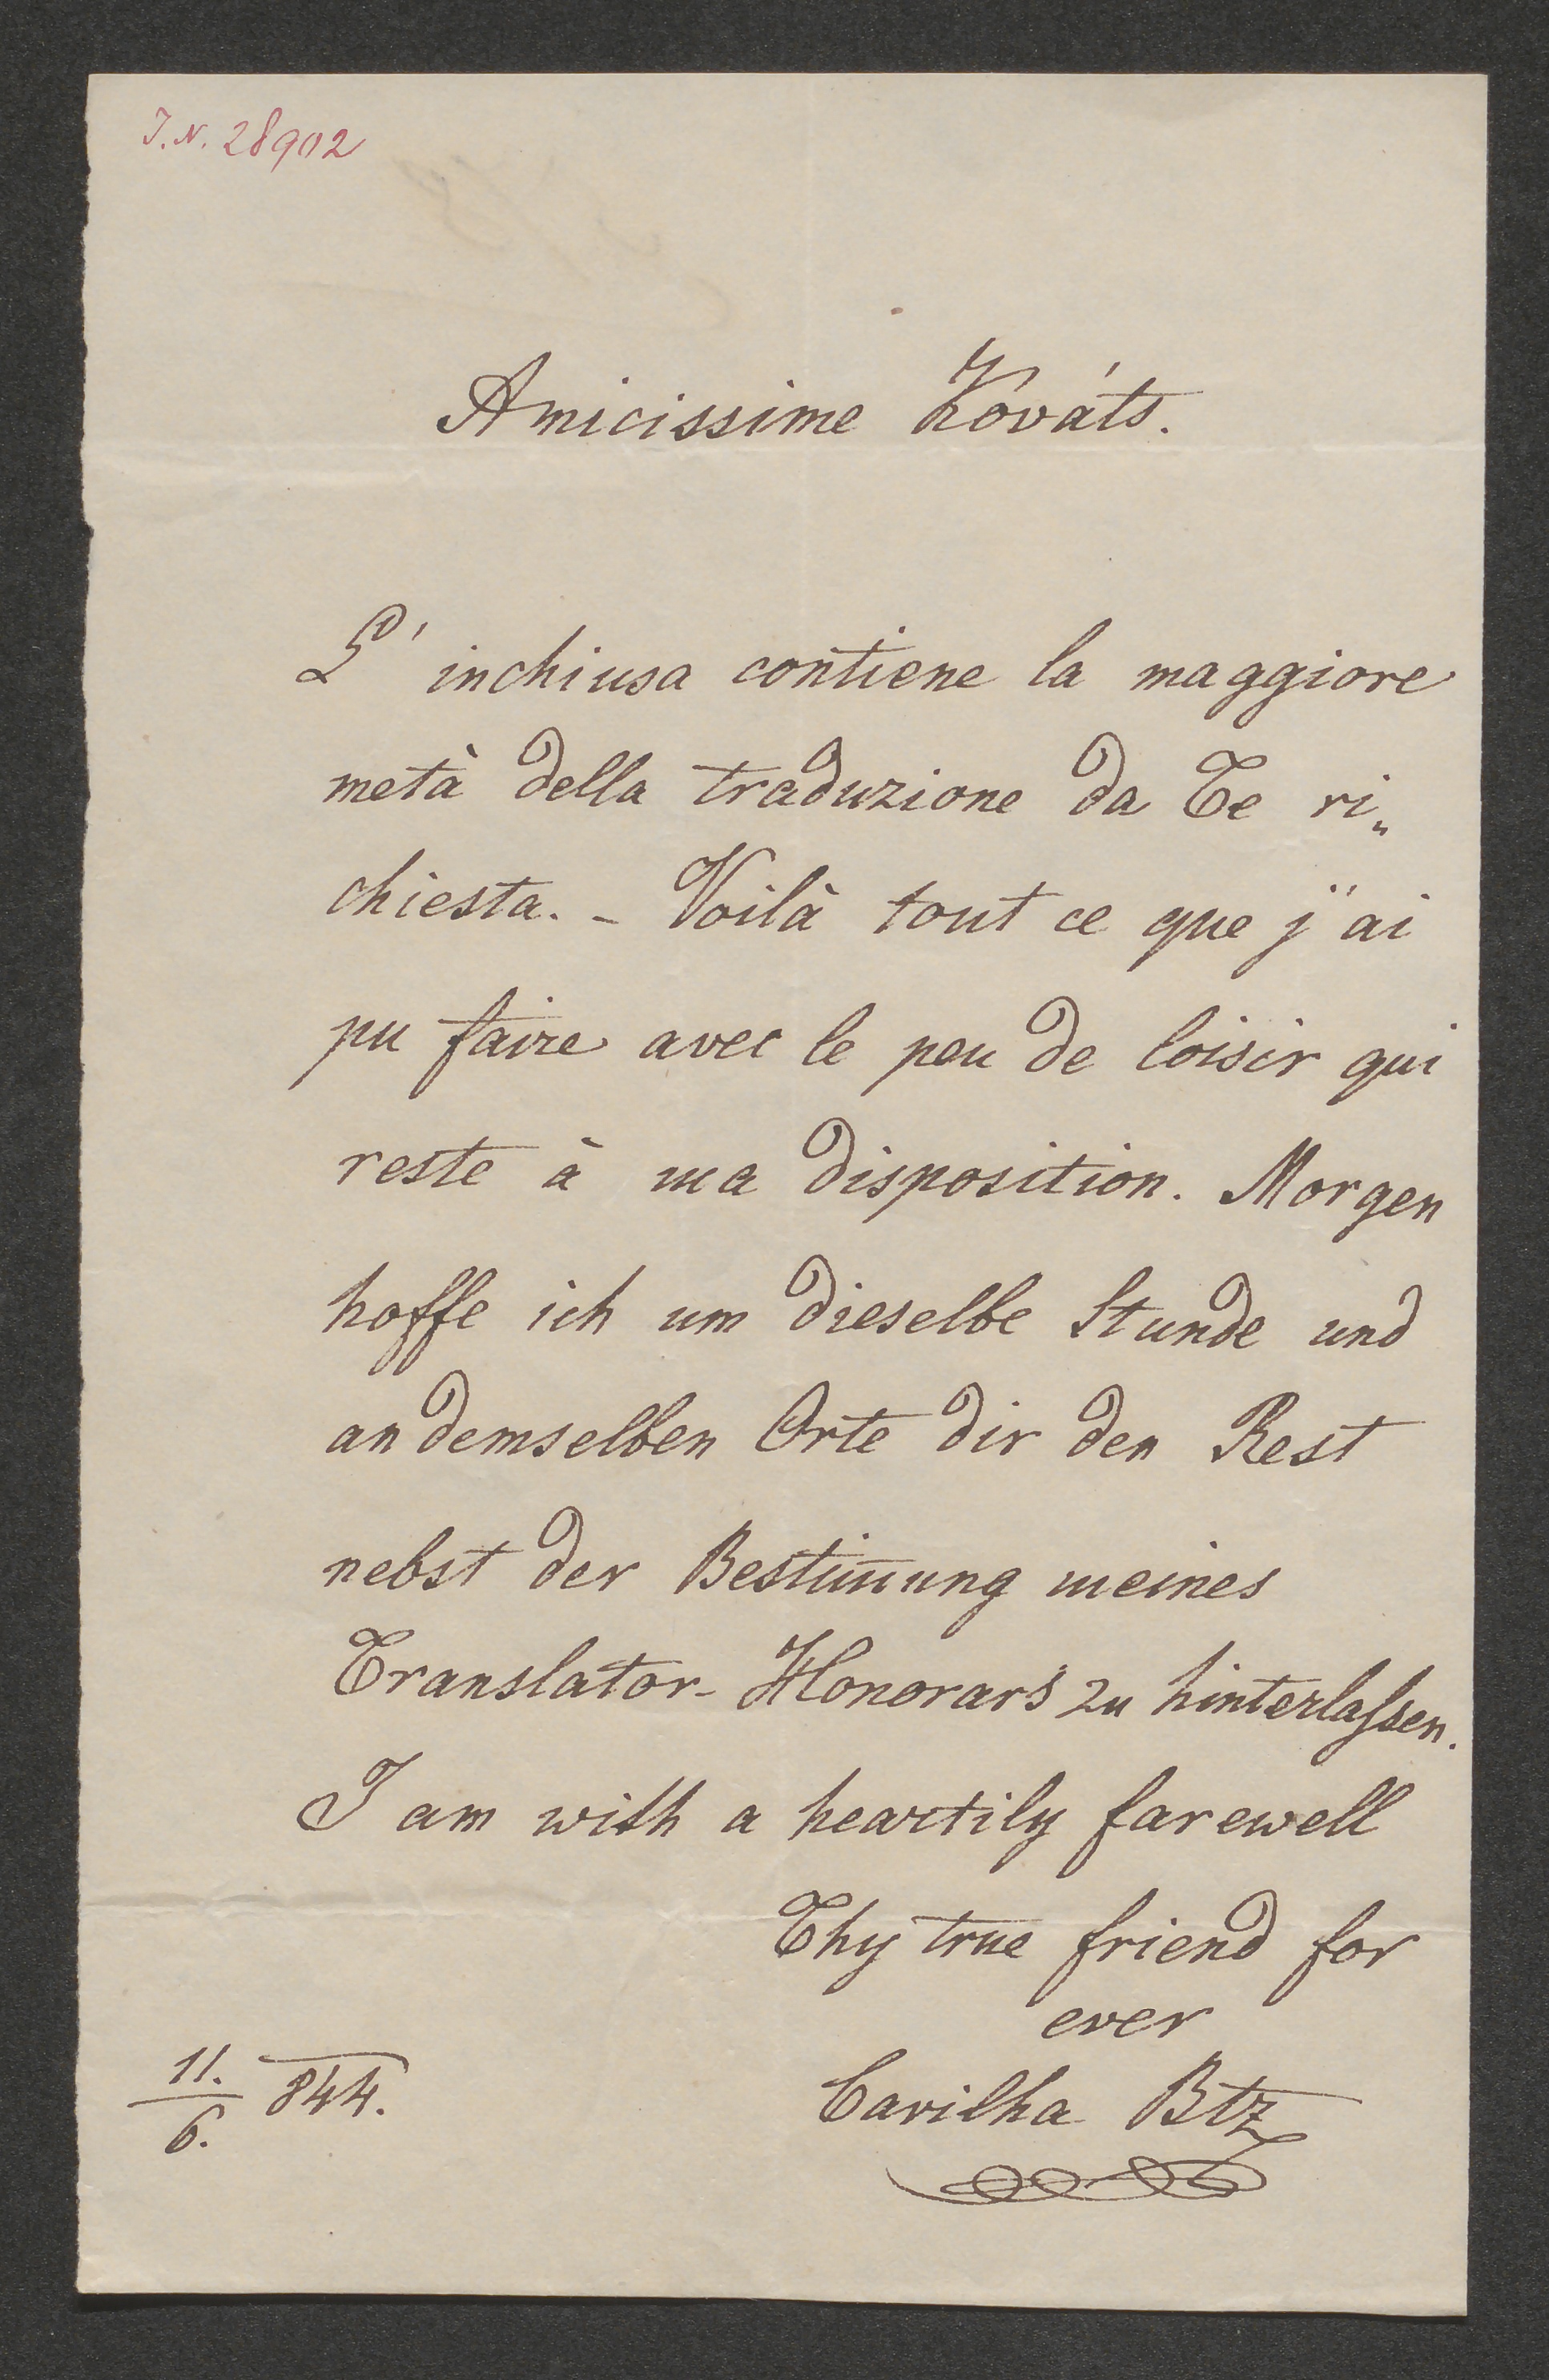 I.N. 28902
Amicissime Kováts.
L' inchiusa contiene la maggiore
metà della traduzione da Te ri„
chiesta. - Voilà tout ce que j'ai
pu faire avec le peu de loisir qui
reste à ma disposition. Morgen
hoffe ich um dieselbe Stunde und
an demselben Orte dir den Rest
nebst der Bestim̅ung meines
Translator-Honorars zu hinterlaſsen.
I am with a heartily farewell
Thy true friend for
ever
11./6. 844.
Carilha Btz